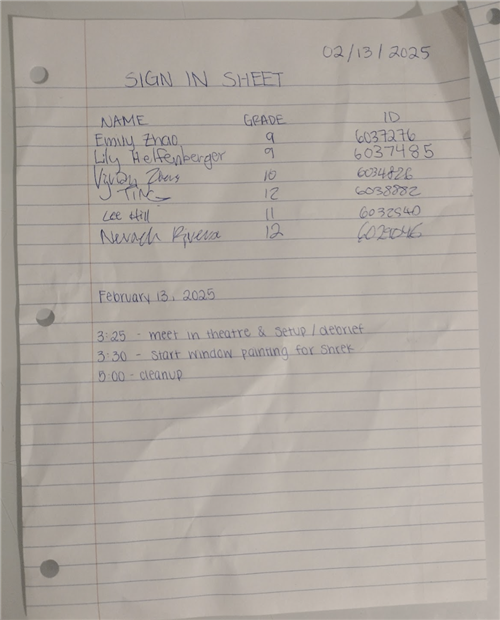 02/13/2025
SIGN IN SHEET
NAME GRADE ID
Emily Zhao 9 6037276
Lily Helfenberger 9 6037485
10 6034826
J TING 12 6038882
Lee Hill 11 6032940
Nevaeh Rivera 12
February 13, 2025
3:25 - meet in theatre & setup/debrief
3:30 - start window painting for shrek
5:00 - cleanup